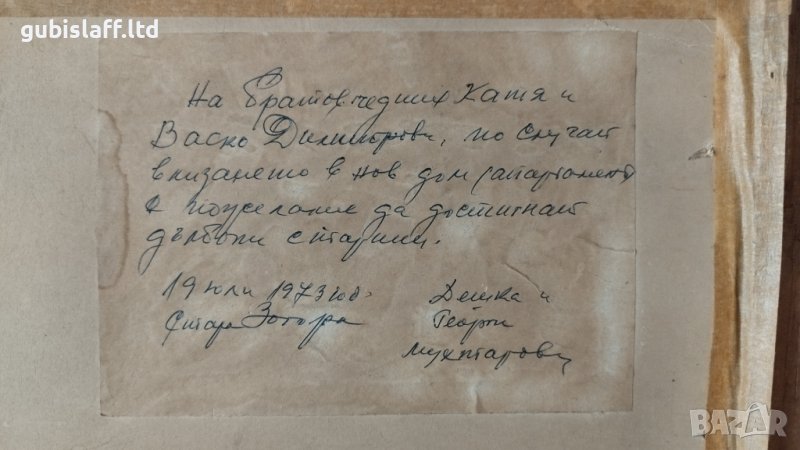 gubislaff.ltd
На братовчедших Катя и
Васко Димитрови, по случай
влизането в нов дом /апартамент/
с пожелание да достигнат
дълбоки старини.
19 юли 1973 год.
Стара Загора
Дешка и
Георги
Мухтарови
BAZAR